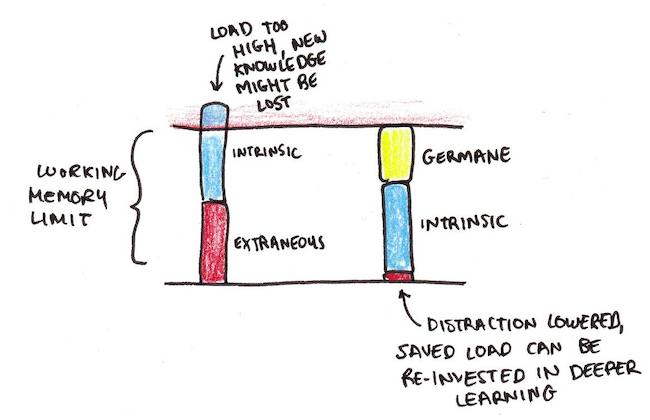 LOAD TOO
HIGH, NEW
KNOWLEDGE
MIGHT BE
LOST
WORKING
MEMORY
LIMIT
INTRINSIC
EXTRANEOUS
GERMANE
INTRINSIC
DISTRACTION LOWERED,
SAVED LOAD CAN BE
RE-INVESTED IN DEEPER
LEARNING